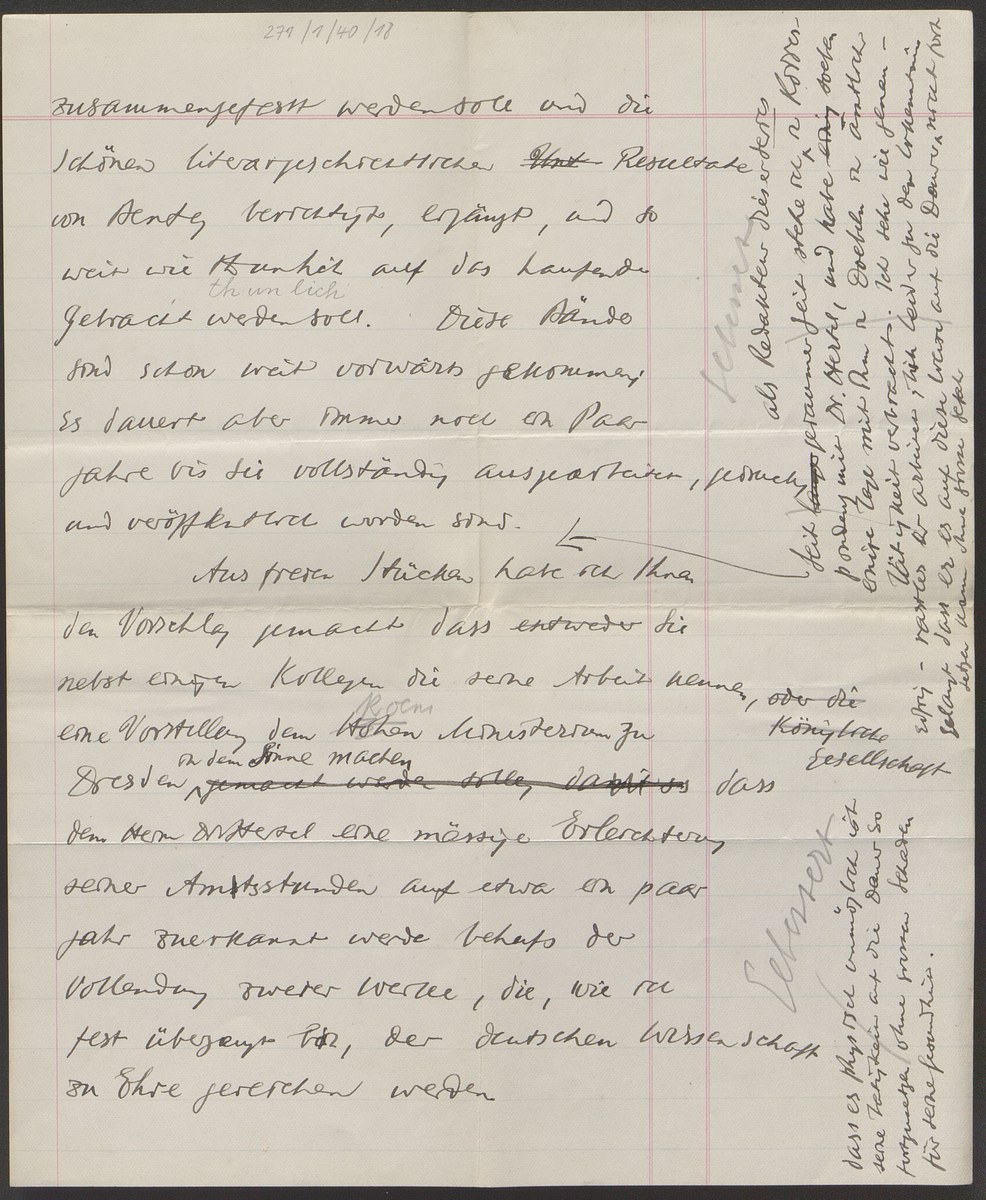 279/1/40/18
zusammengefasst werden soll und die
schönen literargeschichtlichen Unt Resultate
von Benfey berichtigt, ergänzt, und so
weit wie thunlich auf das Laufende
thunlich
gebracht werden soll. Diese Bände
sind schon weit vorwärts gekommen;
es dauert aber immer noch ein Paar
Jahre bis sie vollständig ausgearbeitet, gedruckt
und veröffentlicht worden sind.
Aus freien Stücken habe ich Ihnen
den Vorschlag gemacht dass entweder Sie
nebst einigen Kollegen die seine Arbeit kennen, oder die
Königliche
Gesellschaft
eine Vorstellung dem Hohen Ministerium zu
Koen
in dem Sinne machen
Dresden gemacht werde solle, damit es dass
dem Herrn Dr. Hertel eine mässige Erleichterung
seiner Amtsstunden auf etwa ein paar
Jahr zuerkannt werde behufs der
Vollendung zweier Werke, die, wie ich
fest überzeugt bin, der deutschen Wissenschaft
zu Ehre gereichen werden
als Redakteur dieser Series
Seit lang geraumer Zeit stehe ich in Korres-
pondenz mit Dr. Hertel, und habe einig soeben
einige Tage mit Ihm in Doebeln in ämtlicher
Tätigkeit verbracht. Ich sehe wie genau –
eifrig – rastlos er arbeitet; bin leider zu der Erkenntnis
gelangt dass er es auf diese Weise auf die Dauer nicht fort
setzen kann ohne grosse Gefahr
dass es physisch unmöglich ist
seine Tätigkeit auf die Dauer so
fortzusetzen ohne grossen Schaden
für seine Gesundheit.